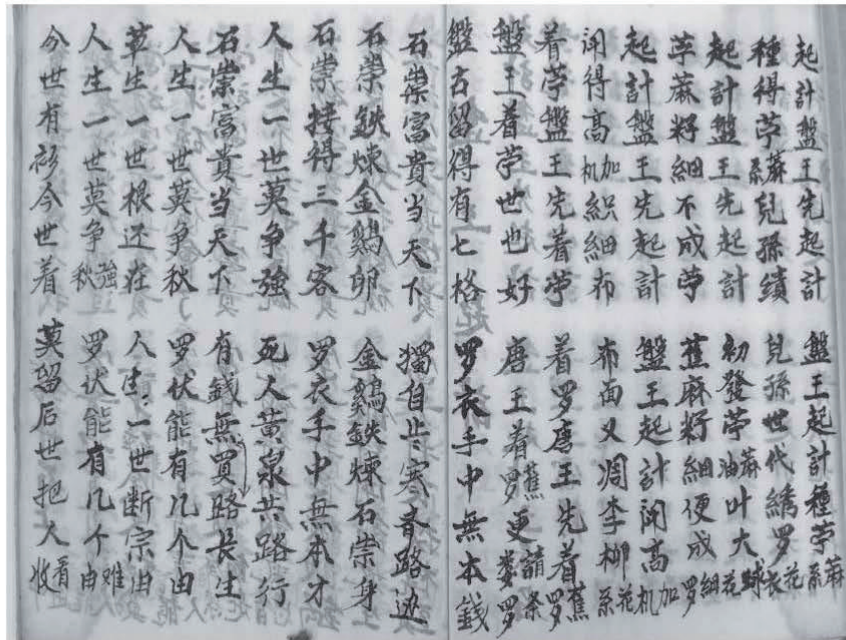 起計盤王先起計 盤王起計種苧蔴系
種得苧蔴系兒孫績 兒孫世代綉罗花衣
起計盤王先起計 初發苧蔴油叶大球花
苧蔴籽細不成苧 蕉麻籽細便成細罗
起計盤王先起計 盤王起計闭高加机
闭得高加机織細布 布面又凋李柳花系
着苧盤王先着苧 着罗唐王先着蕉罗
盤王着苧世也好 唐王着蕉罗更請娄条罗
盤古留得有七格 罗衣手中無本錢
石崇富貴当天下 獨自寒春路边
石崇鉄煉金鷄卵 金鷄鉄煉石崇身
石崇接得三千客 罗衣手中無本才
人生一世莫争強 死人黄泉共路行
石崇富貴当天下 有錢無買路長生
人生一世莫争秋 罗伏能有几个由
草生一世根还在 人生一世断宗由
人生一世莫争強秋 罗伏能有几个难由
今世有衫今世着 莫留后世把人看收